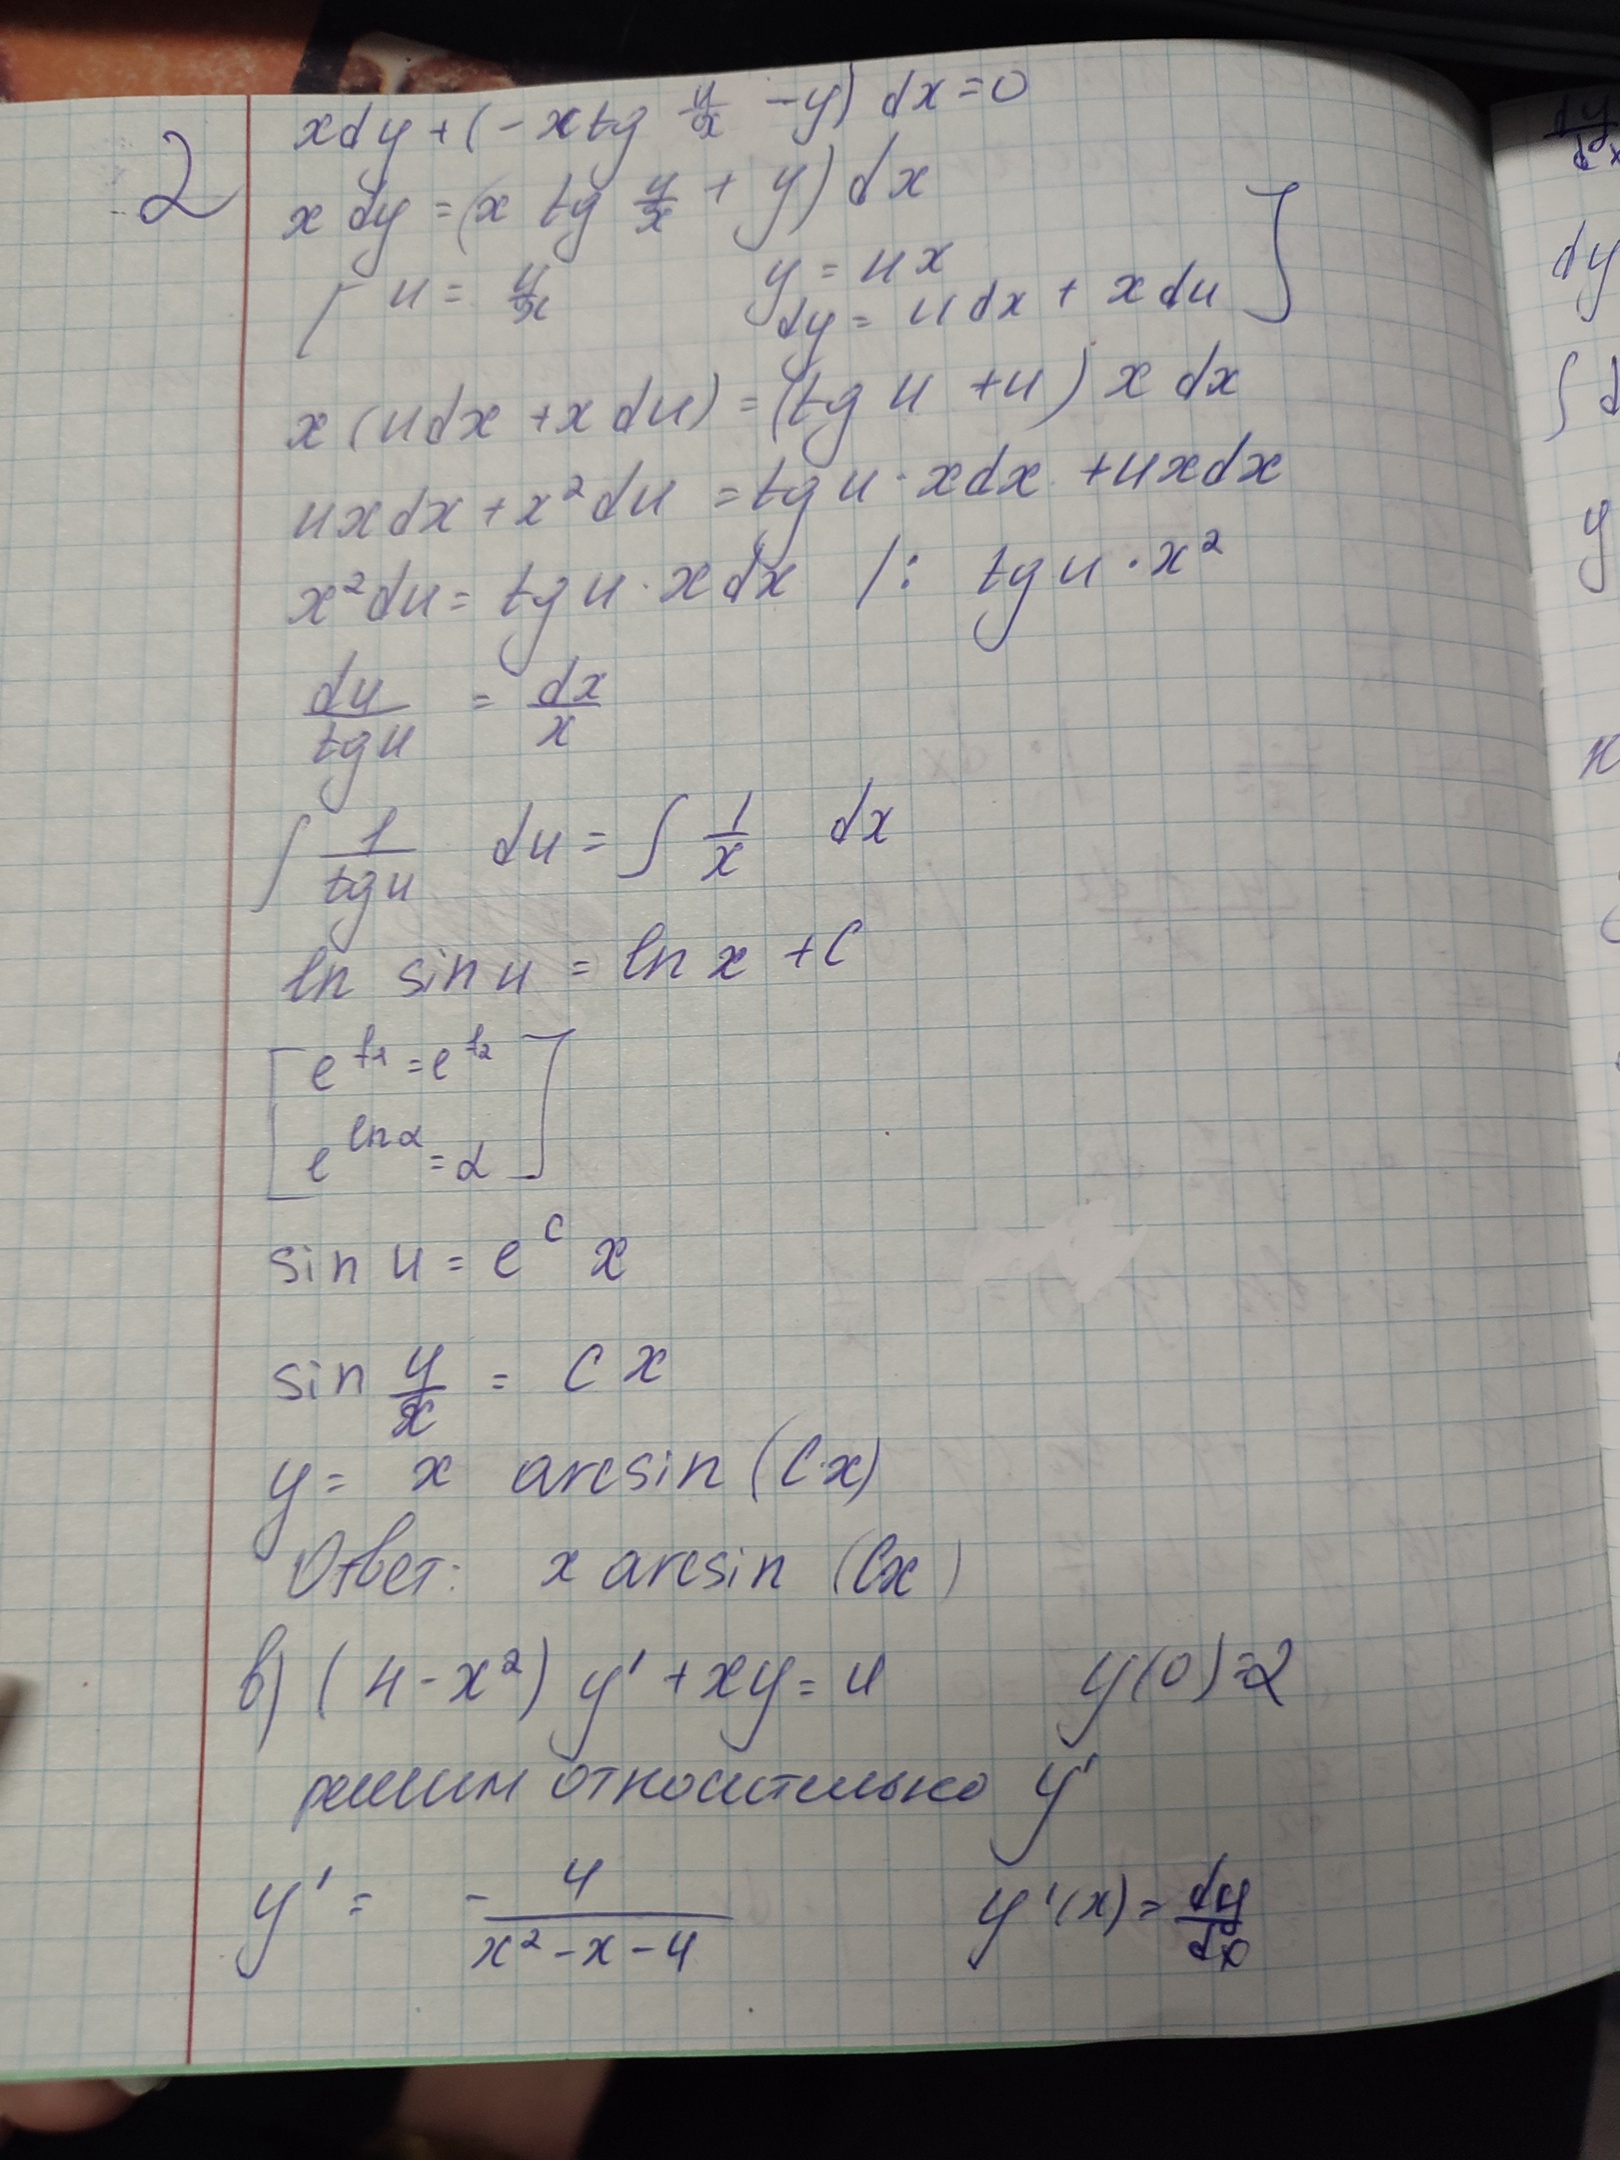 2
xdy + (-x tg y/x - y) dx = 0
x dy = (x tg y/x + y) dx
[ u = y/x y = ux
dy = u dx + x du ]
x (u dx + x du) = (tg u + u) x dx
ux dx + x² du = tg u · x dx + ux dx
x² du = tg u · x dx /: tg u · x²
du/tg u = dx/x
∫ 1/tg u du = ∫ 1/x dx
ln sin u = ln x + C
[ e^f₁ = e^f₂
e^ln α = α ]
sin u = e^C x
sin y/x = C x
y = x arcsin (C·x)
Ответ: x arcsin (Cx)
в) (4 - x²) y' + xy = 4 y(0) = 2
решим относительно y'
y' = - 4/(x² - x - 4) y'(x) = dy/dx
dy/dx
dy
∫ d
y